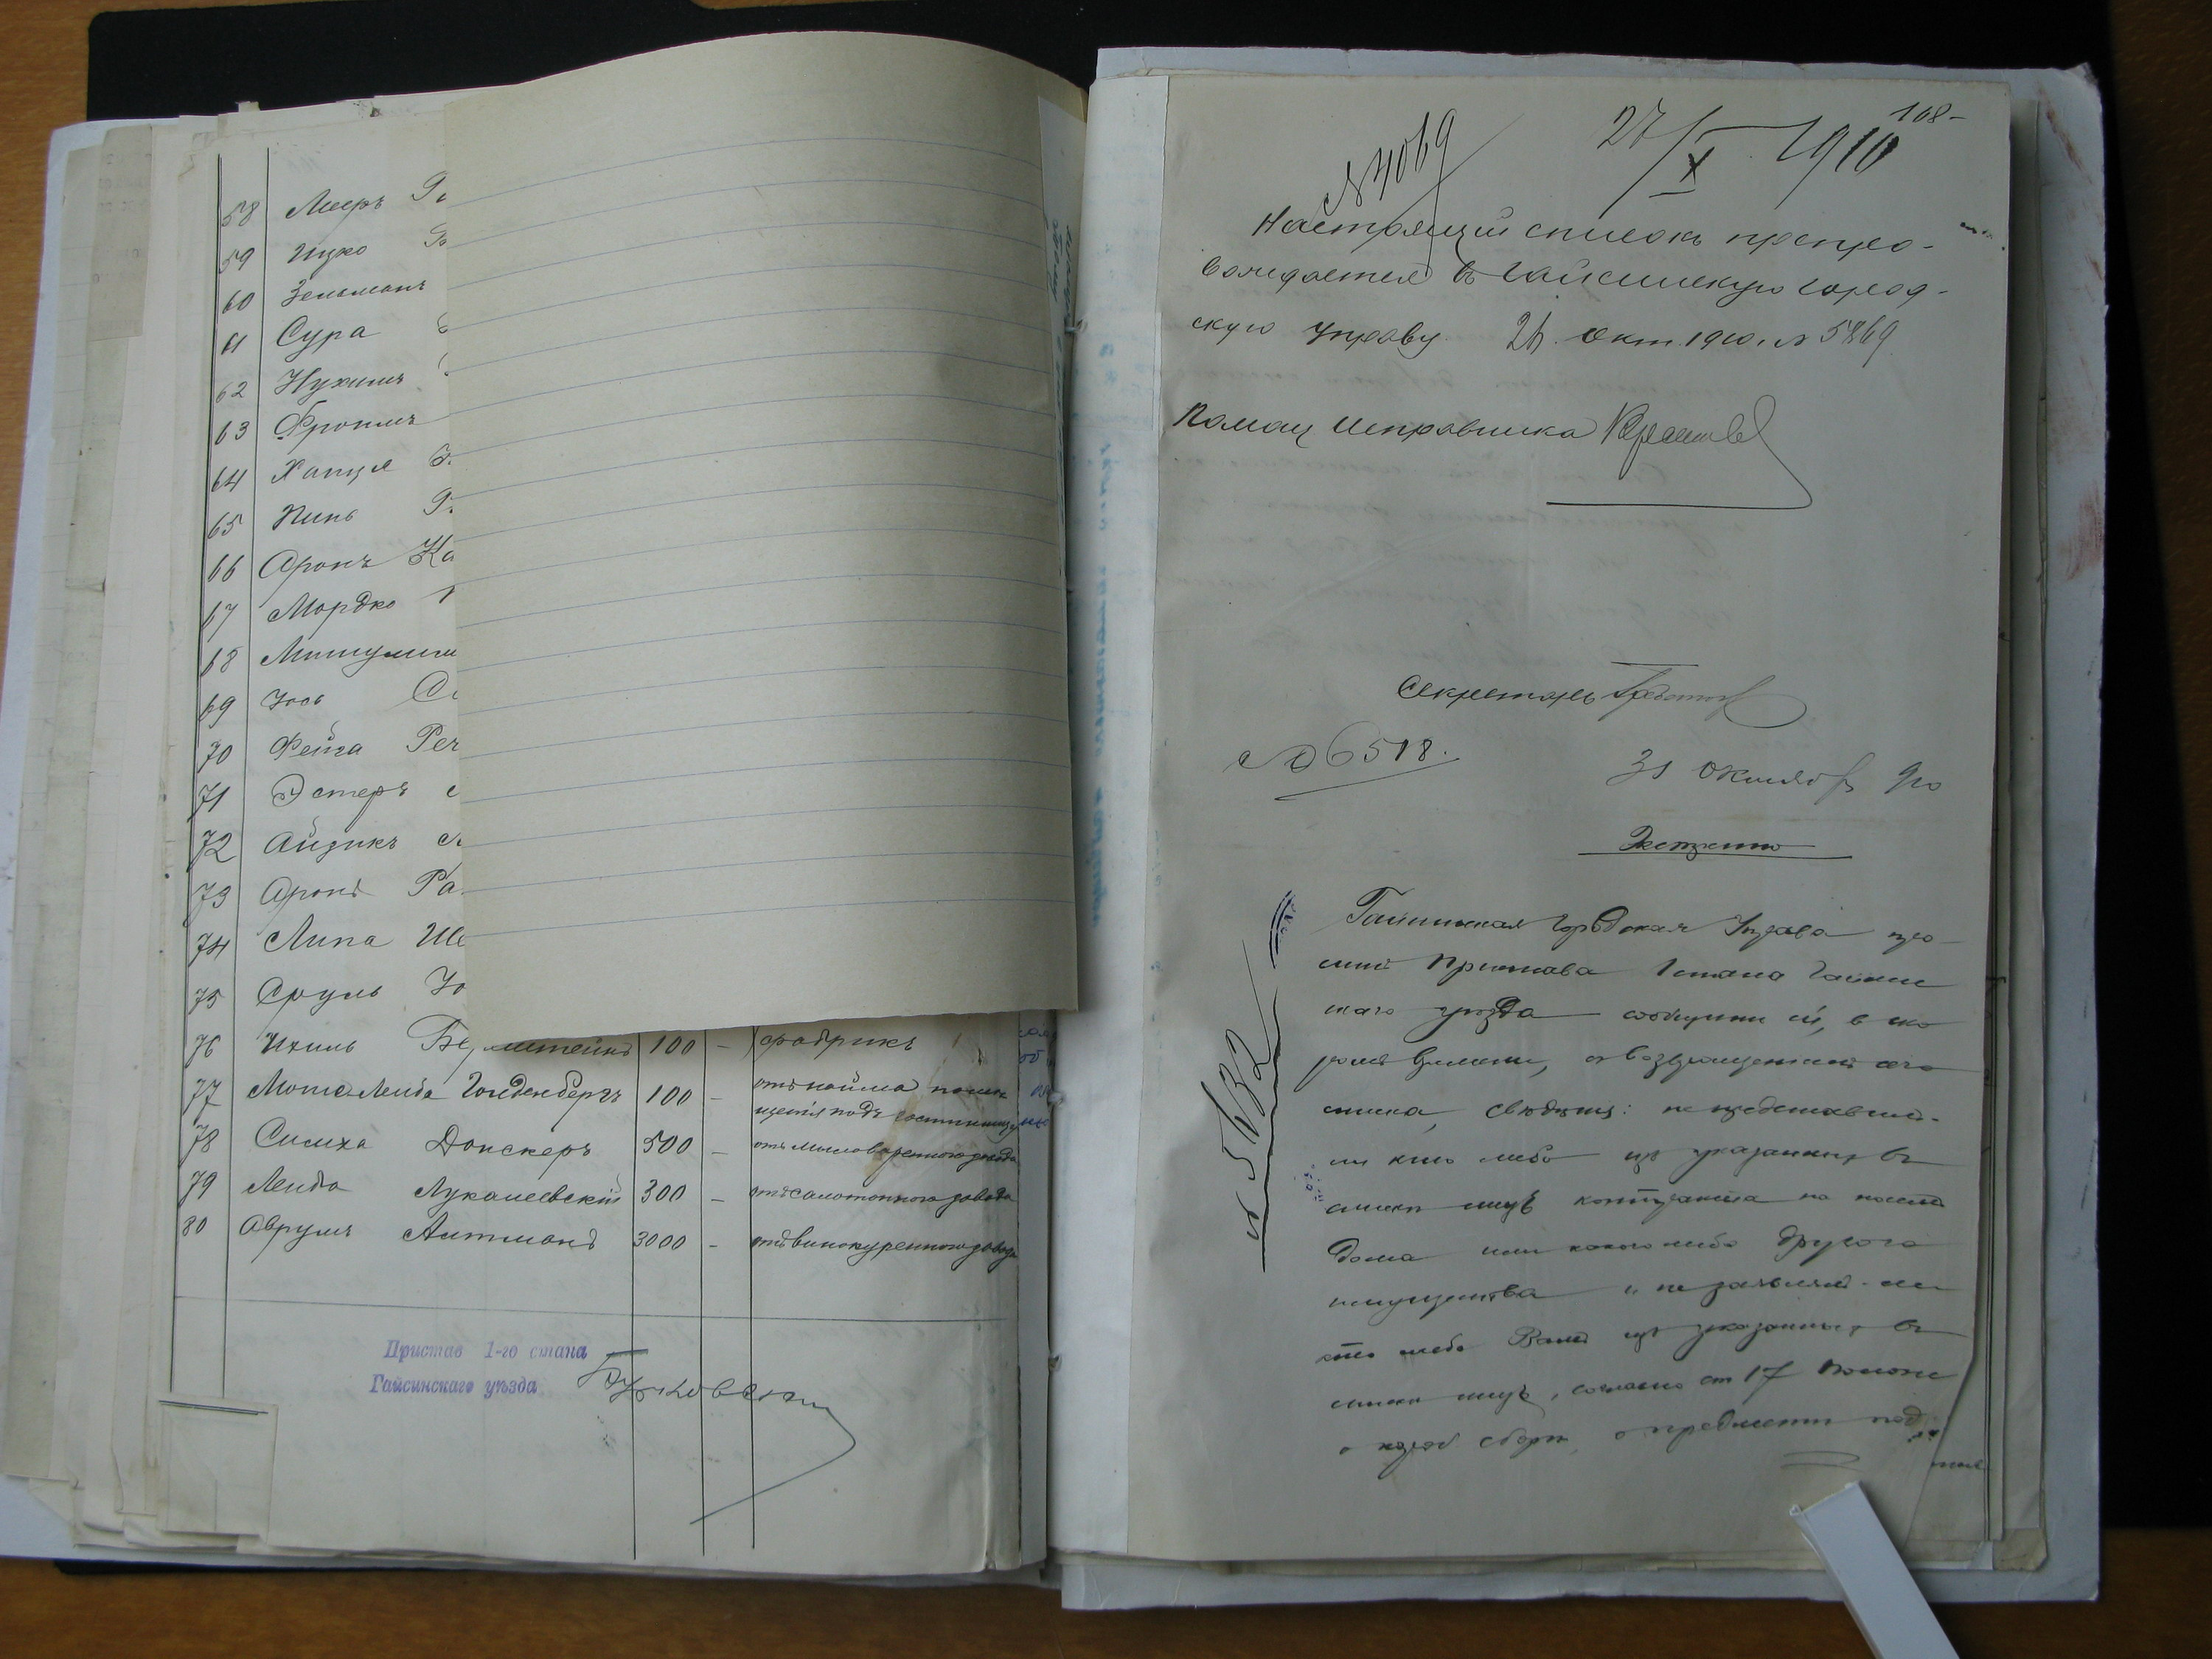 58 Мееръ
59 Ицко
60 Зельманъ
61 Сура
62 Нухимъ
63 Фроимъ
64 Хапця
65 Пинь
66 Аронъ Ка
67 Мордко
68
69 Іось
70 Фейга Реч
71 Эстеръ
72 Айзикъ
73 Аронъ Ра
74 Липа Ше
75 Сруль
76 Ихиль 100 — фабрикъ
77 Мошко Лейба Гольденбергъ 100 — отъ найма поме
щенія подъ гостинницу
78 Симха Донскеръ 500 — отъ мыловареннаго завода
79 Лейба Лукачевскій 300 — отъ салотопнаго завода
80 Аврумъ Альтманъ 3000 — отъ винокуреннаго завода
Пристав 1-го стана
Гайсинскаго уѣзда
168-
27/X 1910
№ 4069
Настоящій списокъ препро-
вождается въ Гайсинскую город-
скую управу. 26 окт. 1910 г. № 5869
Помощ Исправника
Секретарь
№ 6518.
31 октября 910
Экстренно
Гайсинская Городская Управа про-
ситъ Пристава 1 стана Гайсин
скаго уѣзда сообщить ей, в ско
ромъ времени, съ возвращеніемъ сего
списка, свѣдѣнія: не представил-
ли кто либо изъ указанныхъ въ
списке лицъ контракта на наемъ
дома или какого либо другого
имущества и не заявлялъ-ли
кто либо Вамъ изъ указанныхъ въ
списке лицъ, согласно ст 17 Положе
о сборѣ, о предметѣ под
№ 5632